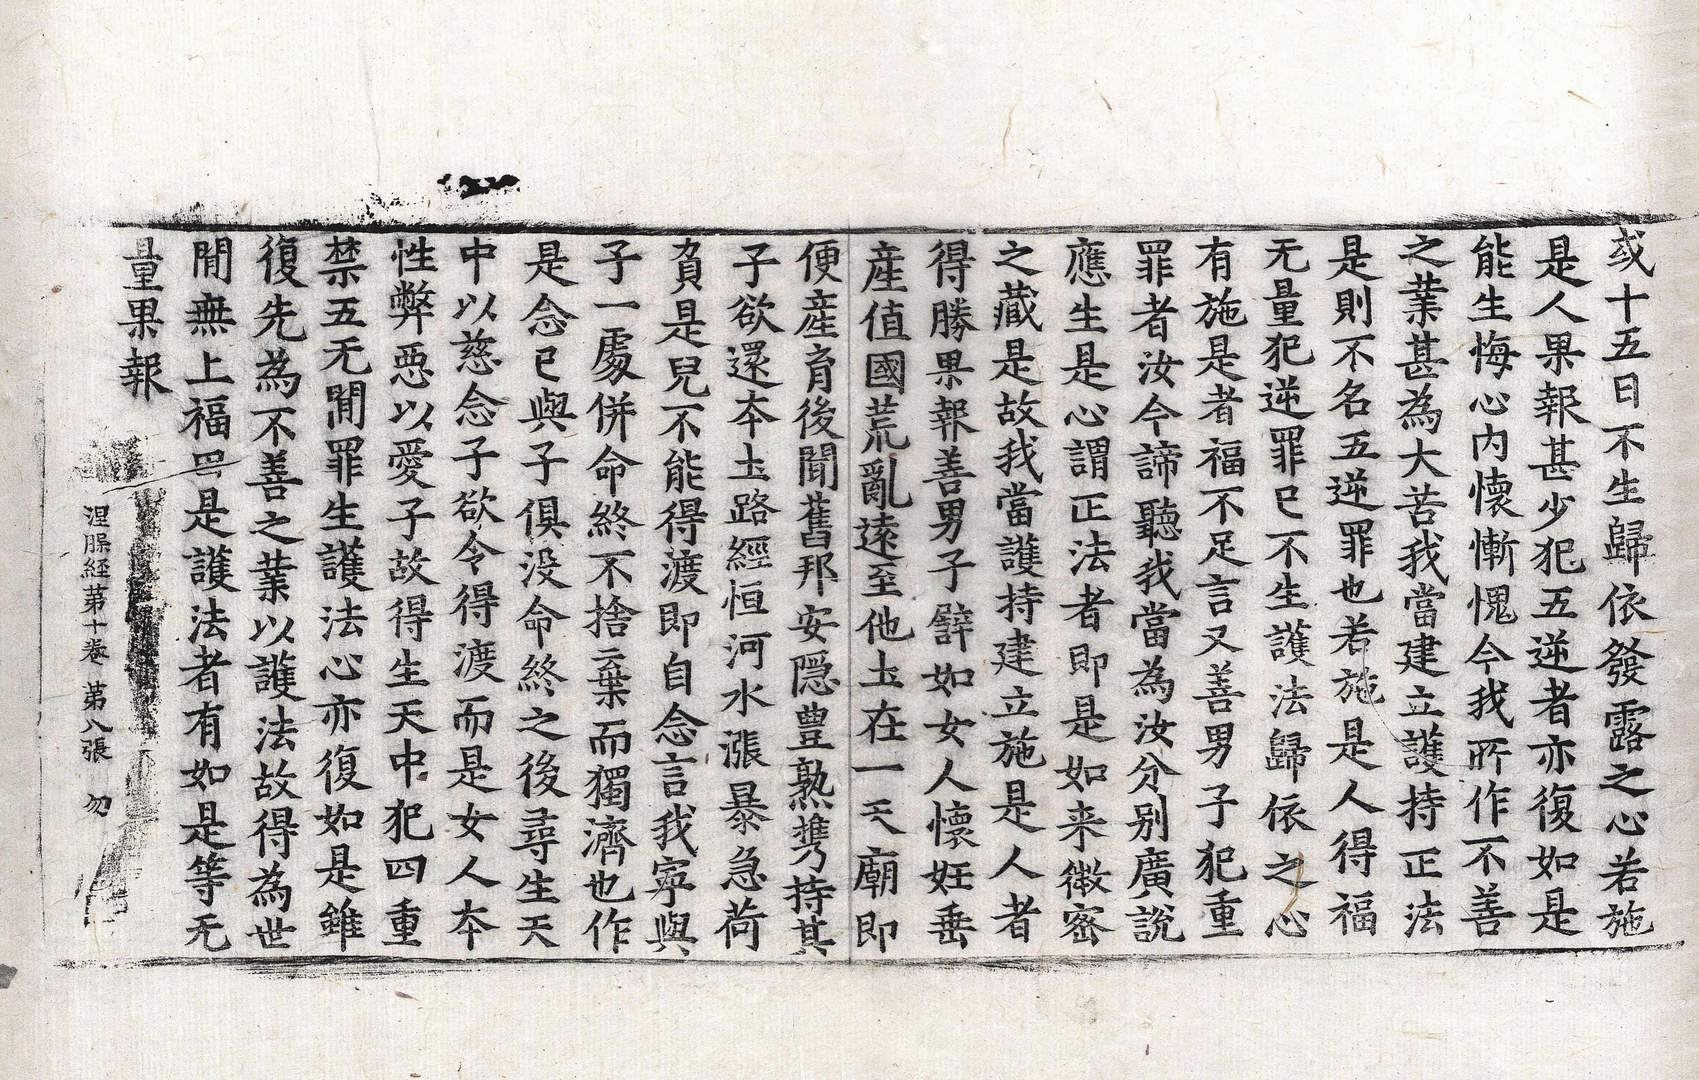 或十五日不生歸依發露之心若施
是人果報甚少犯五逆者亦復如是
能生悔心内懷慚愧今我所作不善
之業甚為大苦我當建立護持正法
是則不名五逆罪也若施是人得福
无量犯逆罪已不生護法歸依之心
有施是者福不足言又善男子犯重
罪者汝今諦聽我當為汝分别廣說
應生是心謂正法者即是如来微密
之藏是故我當護持建立施是人者
得勝果報善男子譬如女人懷妊垂
産值國荒亂遠至他土在一天廟即
便産育後聞舊邦安隱豊熟携持其
子欲還本土路經恒河水漲暴急荷
負是兒不能得渡即自念言我寧與
子一處併命終不捨棄而獨濟也作
是念已與子俱没命終之後尋生天
中以慈念子欲令得渡而是女人本
性弊惡以愛子故得生天中犯四重
禁五无間罪生護法心亦復如是雖
復先為不善之業以護法故得為世
間無上福田是護法者有如是等无
量果報
涅槃經第十卷 第八張 勿